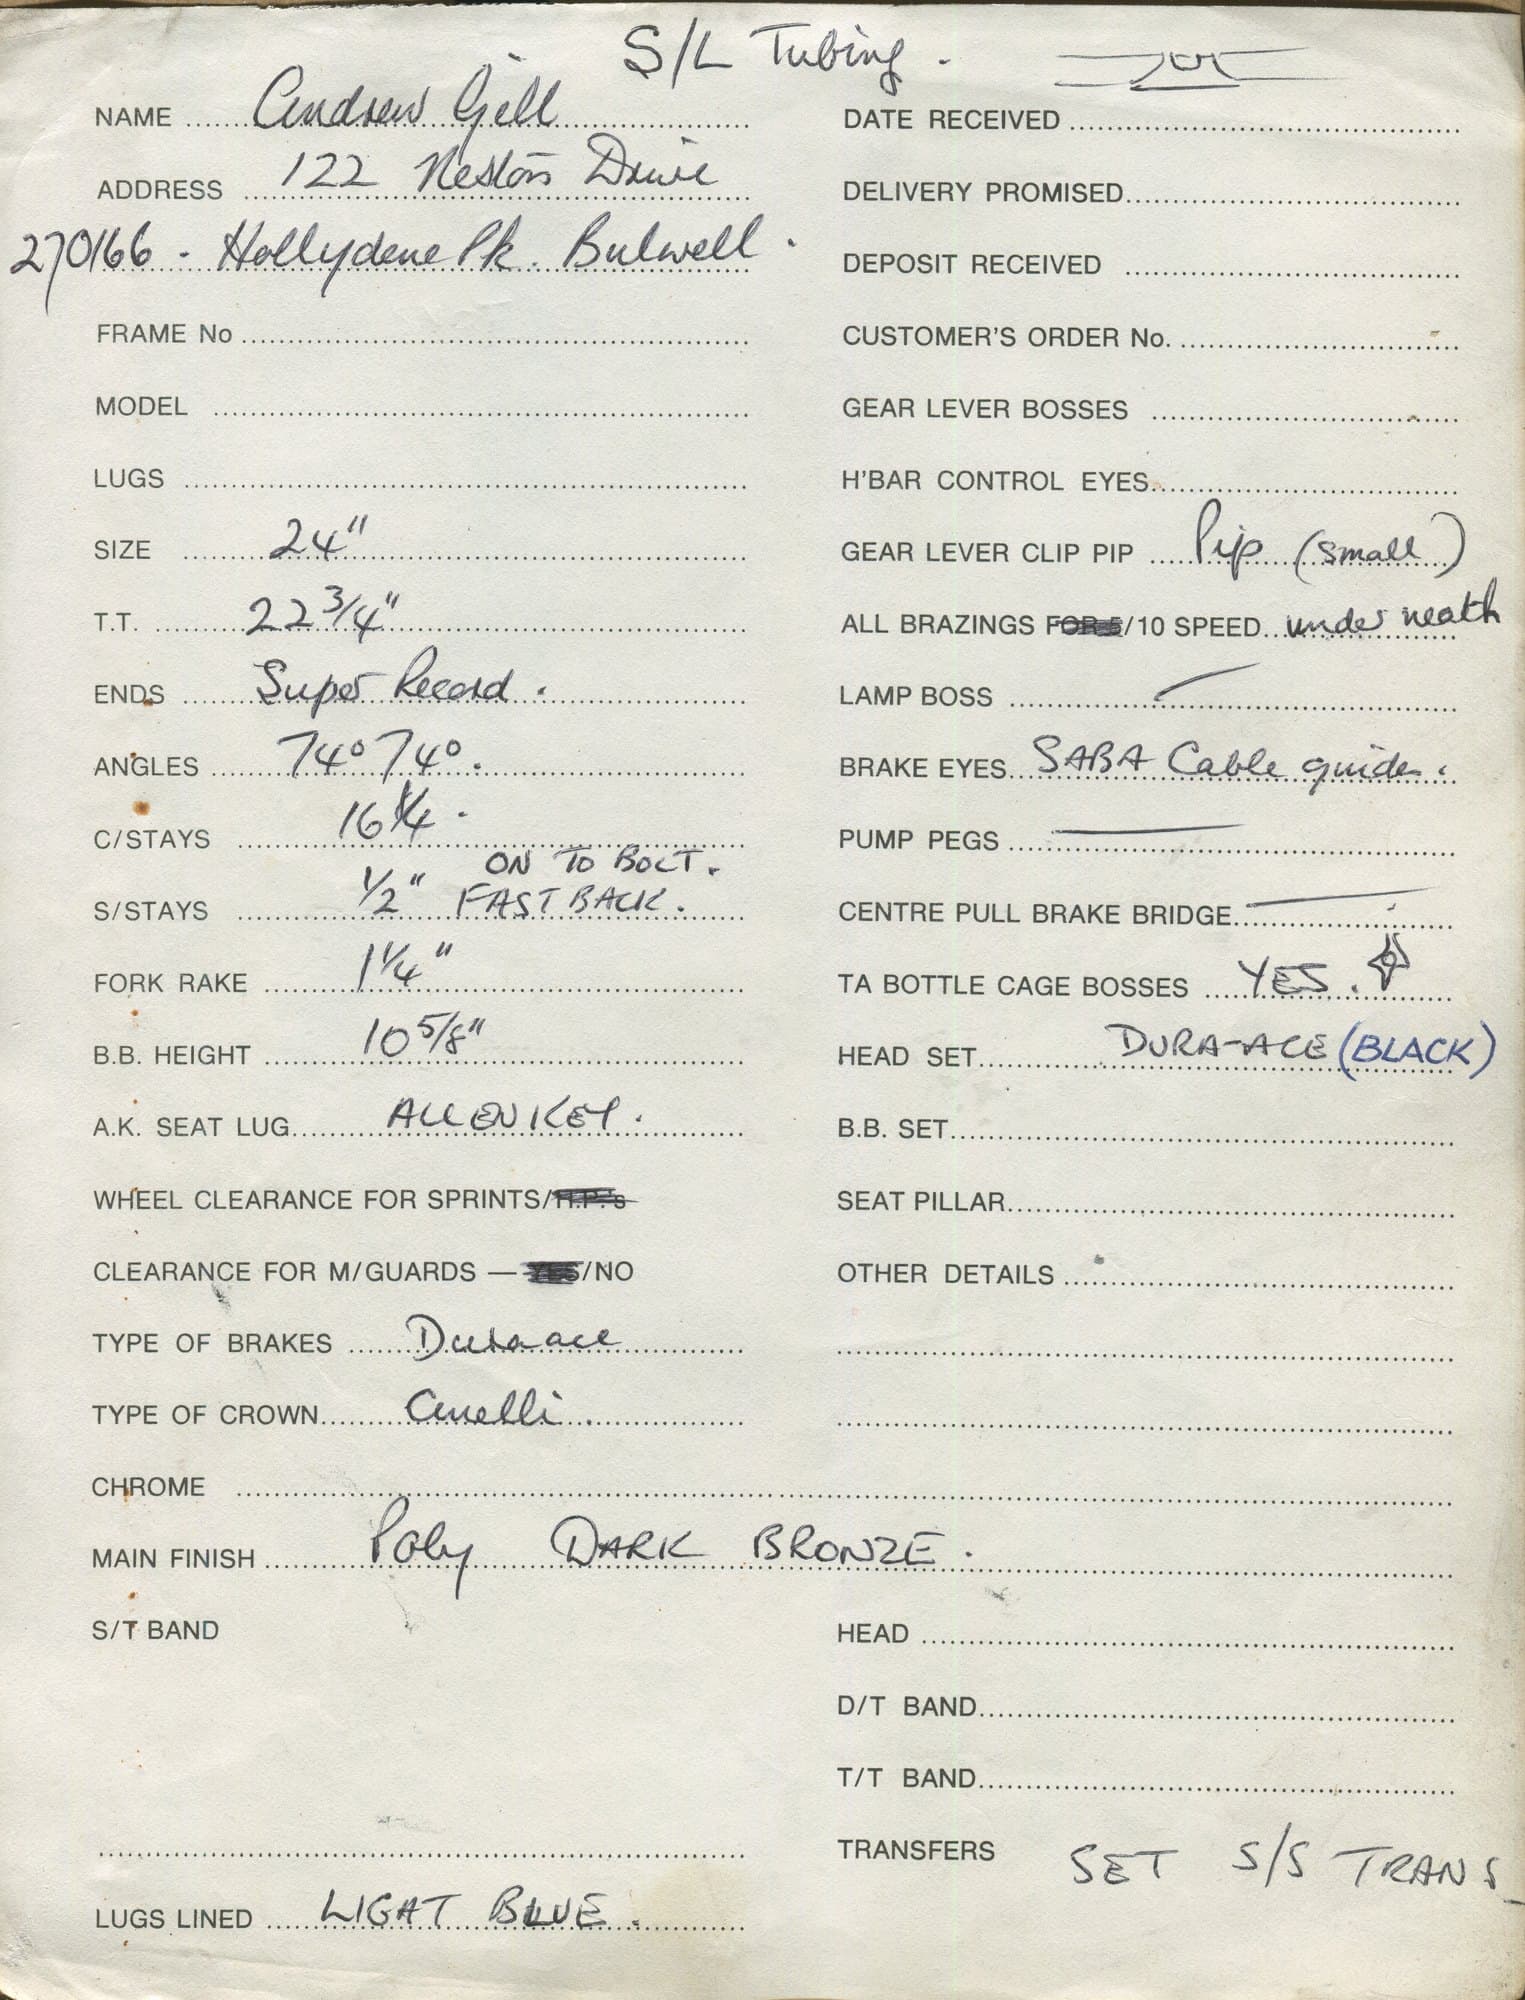 S/L Tubing.
NAME Andrew Gill
ADDRESS 122 Neston Drive
270166 - Hollydene Pk. Bulwell.
FRAME No
MODEL
LUGS
SIZE 24"
T.T. 22 3/4"
ENDS Super Record.
ANGLES 74° 74°.
C/STAYS 16 1/4.
ON TO BOLT.
S/STAYS 1/2" FASTBACK.
FORK RAKE 1 1/4"
B.B. HEIGHT 10 5/8"
A.K. SEAT LUG ALLEN KEY.
WHEEL CLEARANCE FOR SPRINTS/H.P.'s
CLEARANCE FOR M/GUARDS — YES/NO
TYPE OF BRAKES Dura ace
TYPE OF CROWN Cinelli.
CHROME
MAIN FINISH Poly DARK BRONZE.
S/T BAND
LUGS LINED LIGHT BLUE.
DATE RECEIVED
DELIVERY PROMISED
DEPOSIT RECEIVED
CUSTOMER'S ORDER No.
GEAR LEVER BOSSES
H'BAR CONTROL EYES
GEAR LEVER CLIP PIP Pip (small)
ALL BRAZINGS FOR 5/10 SPEED underneath
LAMP BOSS
BRAKE EYES SABA Cable guides.
PUMP PEGS
CENTRE PULL BRAKE BRIDGE
TA BOTTLE CAGE BOSSES YES.
HEAD SET DURA-ACE (BLACK)
B.B. SET
SEAT PILLAR
OTHER DETAILS
HEAD
D/T BAND
T/T BAND
TRANSFERS SET S/S TRANS